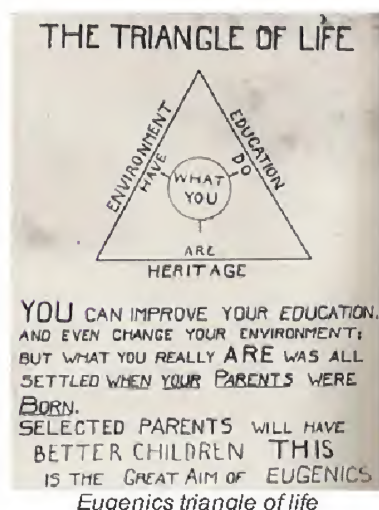 THE TRIANGLE OF LIFE
ENVIRONMENT
HAVE
EDUCATION
DO
WHAT
YOU
ARE
HERITAGE
YOU CAN IMPROVE YOUR EDUCATION.
AND EVEN CHANGE YOUR ENVIRONMENT;
BUT WHAT YOU REALLY ARE WAS ALL
SETTLED WHEN YOUR PARENTS WERE
BORN.
SELECTED PARENTS WILL HAVE
BETTER CHILDREN THIS
IS THE GREAT AIM OF EUGENICS
Eugenics triangle of life